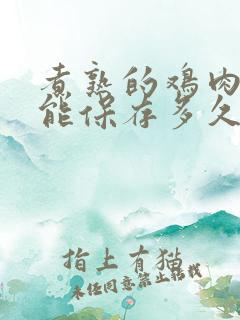 煮熟的鸡肉
能保存多久
指上有猫
未经同意禁止转载